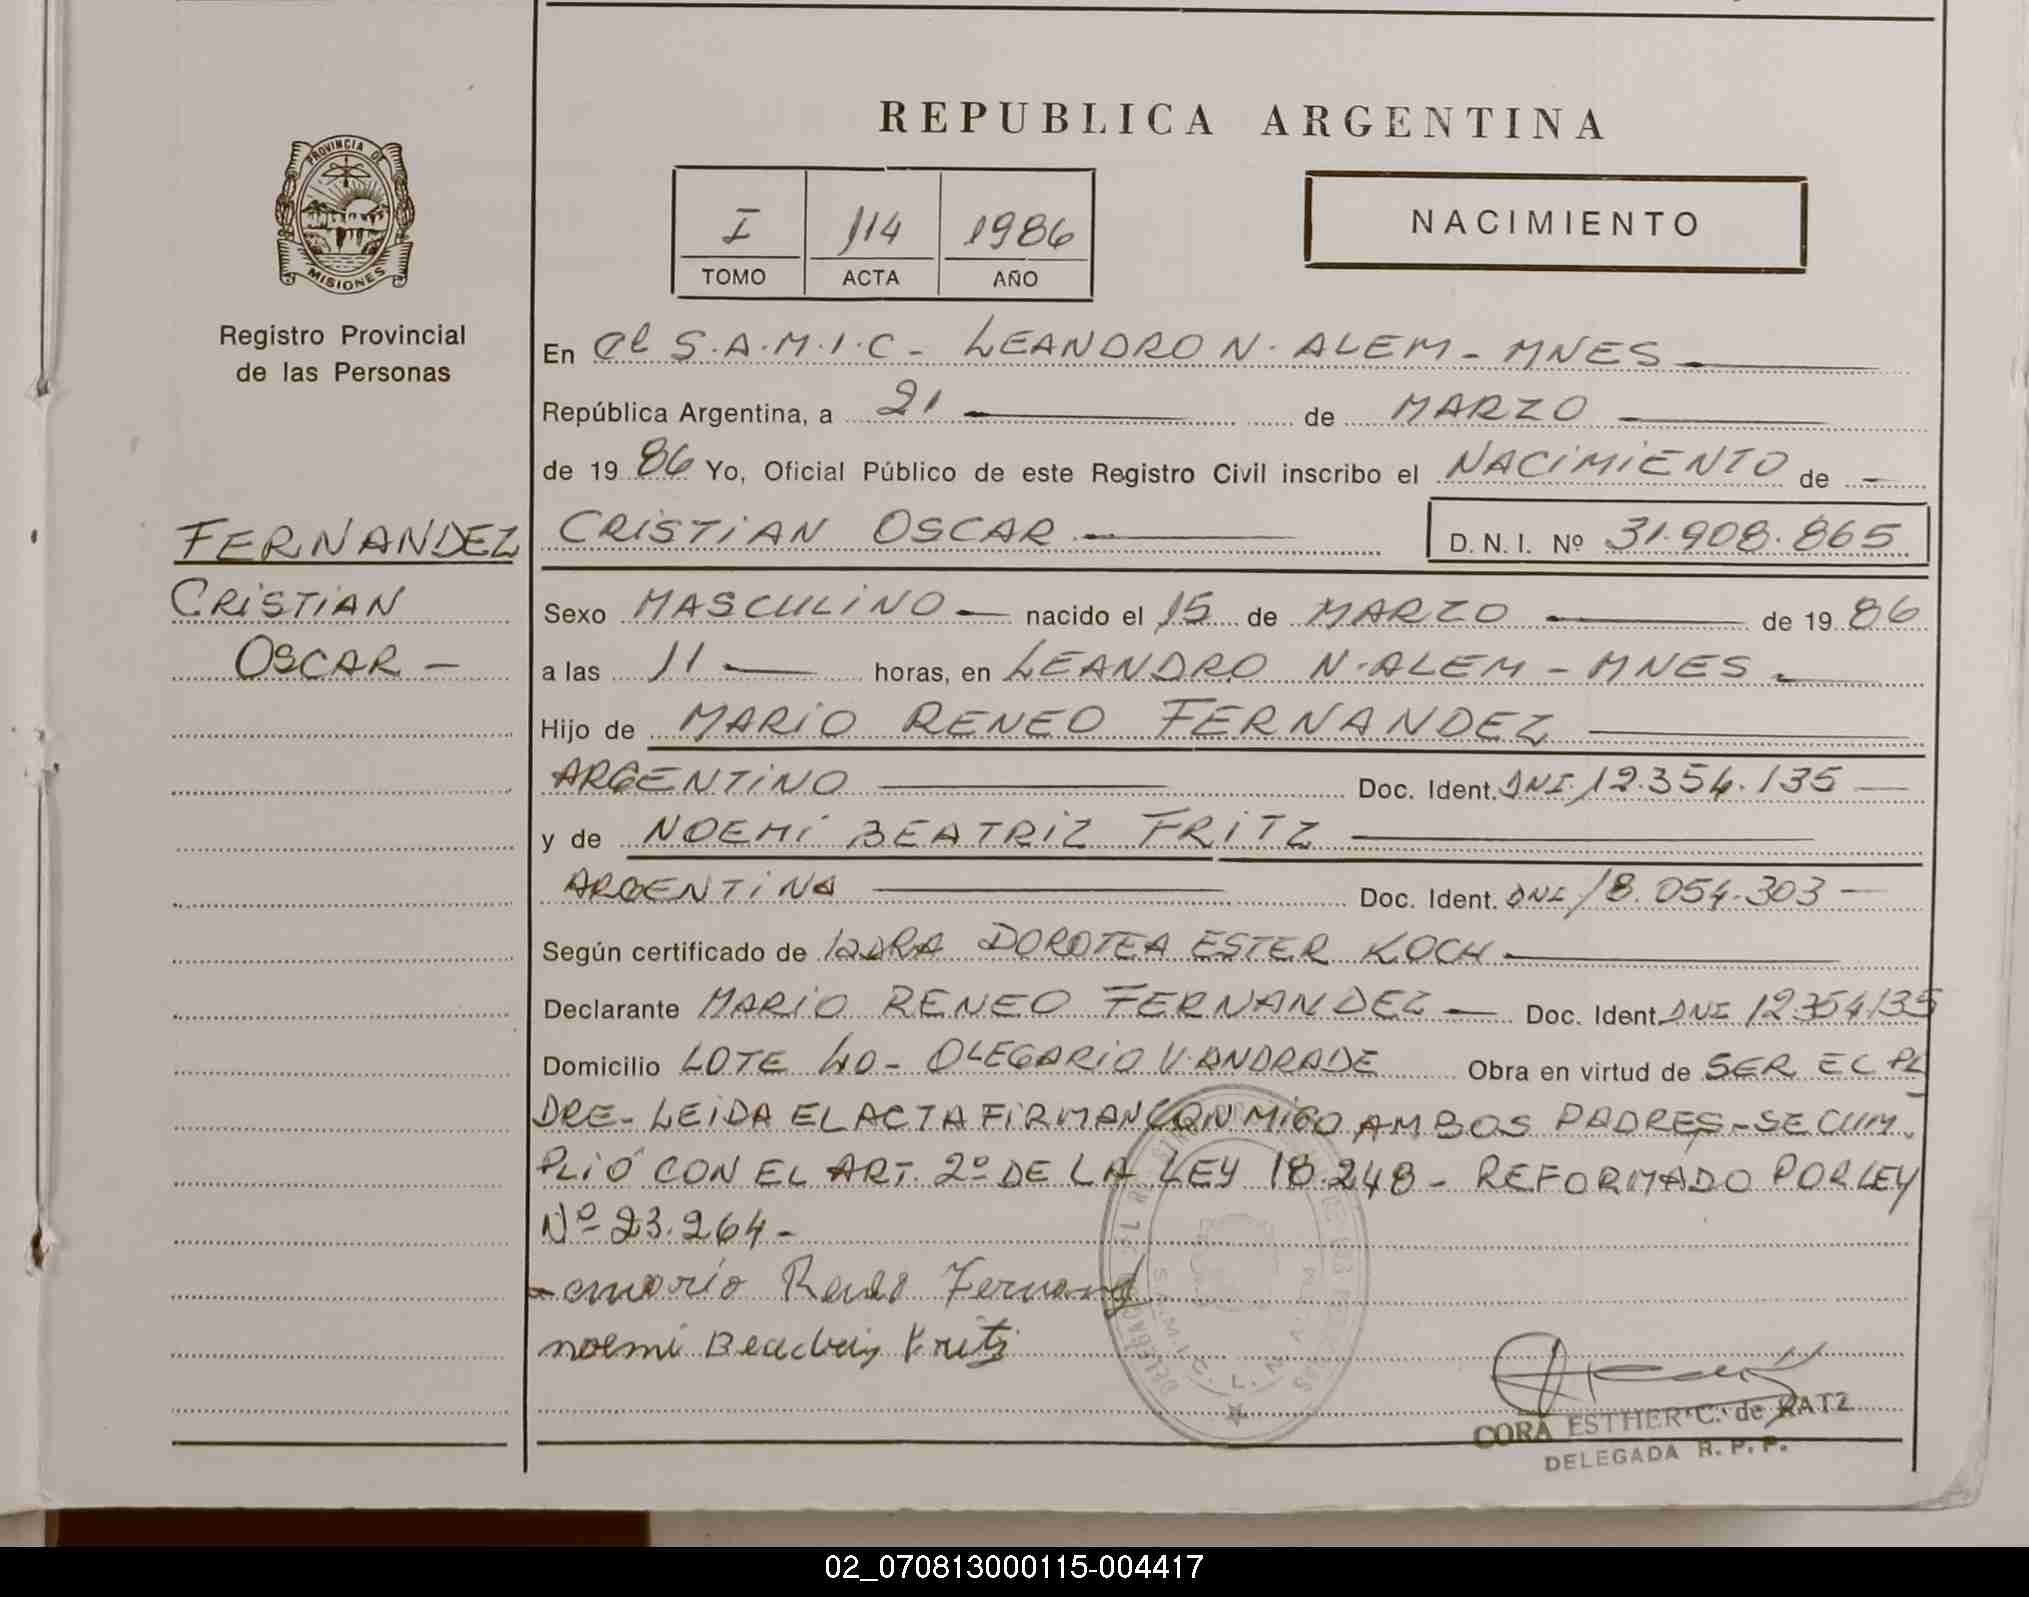 REPUBLICA ARGENTINA
PROVINCIA DE
MISIONES
Registro Provincial
de las Personas
I 114 1986
TOMO ACTA AÑO
NACIMIENTO
En el S.A.M.I.C - LEANDRO N. ALEM - MNES
República Argentina, a 21 de MARZO
de 19 86 Yo, Oficial Público de este Registro Civil inscribo el NACIMIENTO de
FERNANDEZ
CRISTIAN
OSCAR -
CRISTIAN OSCAR D.N.I. Nº 31.908.865
Sexo MASCULINO nacido el 15 de MARZO de 19 86
a las 11 horas, en LEANDRO N. ALEM - MNES
Hijo de MARIO RENEO FERNANDEZ
ARGENTINO Doc. Ident. DNI 12.354.135
y de NOEMÍ BEATRIZ FRITZ
ARGENTINA Doc. Ident. DNI 18.054.303
Según certificado de DRA DOROTEA ESTER KOCH
Declarante MARIO RENEO FERNANDEZ Doc. Ident. DNI 12354135
Domicilio LOTE 40 - OLEGARIO V. ANDRADE Obra en virtud de SER EL PA
DRE - LEIDA EL ACTA FIRMAN CONMIGO AMBOS PADRES - SE CUM
PLIÓ CON EL ART. 2º DE LA LEY 18.248 - REFORMADO POR LEY
Nº 23.264 -
noemi Beatriz Fritz
CORA ESTHER C. de RATZ
DELEGADA R. P. P.
02_070813000115-004417